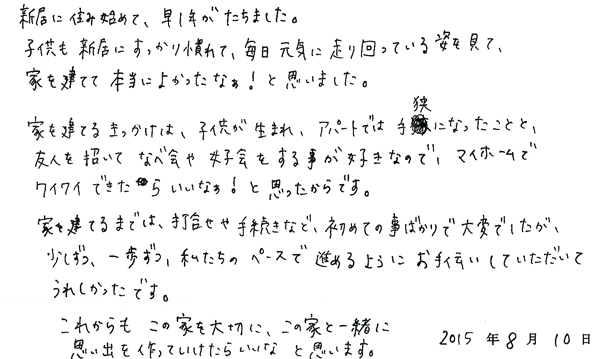 新居に住み始めて、早1年がたちました。
子供も新居にすっかり慣れて、毎日元気に走り回っている姿を見て、
家を建てて本当によかったなぁ!と思いました。
家を建てるきっかけは、子供が生まれ、アパートでは手狭になったことと、
友人を招いてなべ会や女子会をする事が好きなので、マイホームで
ワイワイできたらいいなぁ!と思ったからです。
家を建てるまでは、打合せや手続きなど、初めての事ばかりで大変でしたが、
少しずつ、一歩ずつ、私たちのペースで進めるようにお手伝いしていただいて
うれしかったです。
これからもこの家を大切に、この家と一緒に
思い出を作っていけたらいいなと思います。
2015年8月10日